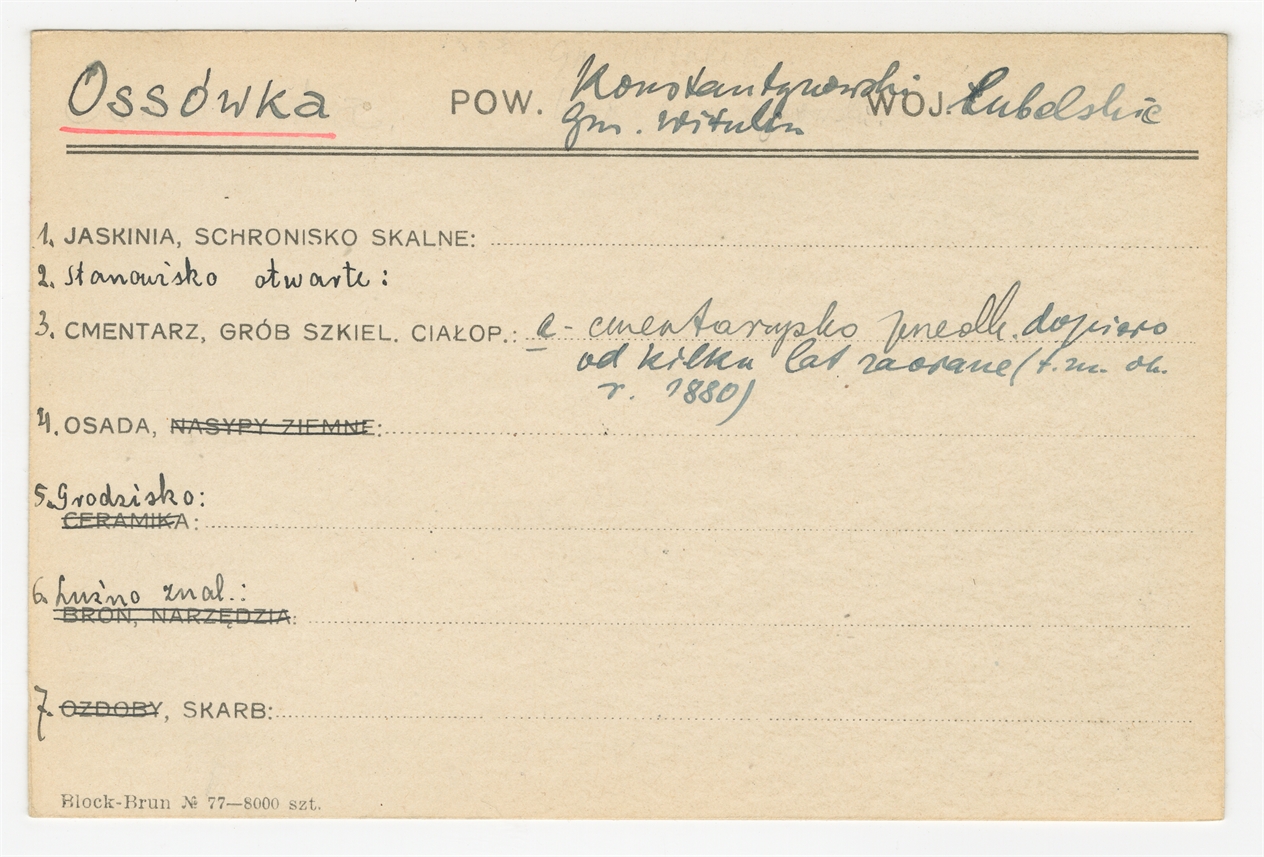 Ossówka POW. Konstantynowski WOJ. Lubelskie
gm. Witulin
1. JASKINIA, SCHRONISKO SKALNE:
2. Stanowisko otwarte:
3. CMENTARZ, GRÓB SZKIEL. CIAŁOP.: a - cmentarzysko przedh. dopiero
od kilku lat zaorane (t. zn. ok.
r. 1880)
4. OSADA, NASYPY ZIEMNE:
5. Grodzisko:
CERAMIKA:
6. Luźno znal.:
BROŃ, NARZĘDZIA:
7. OZDOBY, SKARB:
Block-Brun № 77—8000 szt.